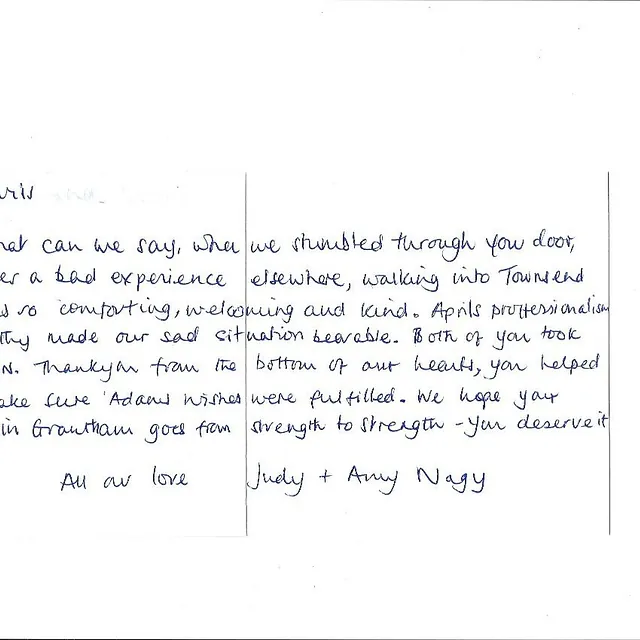 ris
hat can we say, when we stumbled through you door,
er a bad experience elsewhere, walking into Townsend
s so comforting, welcoming and kind. Aprils proffessionalism
thy made our sad situnation bearable. Both of you took
s. Thankyou from the bottom of our hearts, you helped
ake sure 'Adams wishes were fulfilled. We hope your
in Grantham goes from strength to strength - you deserve it
All our love Judy + Amy Nagy